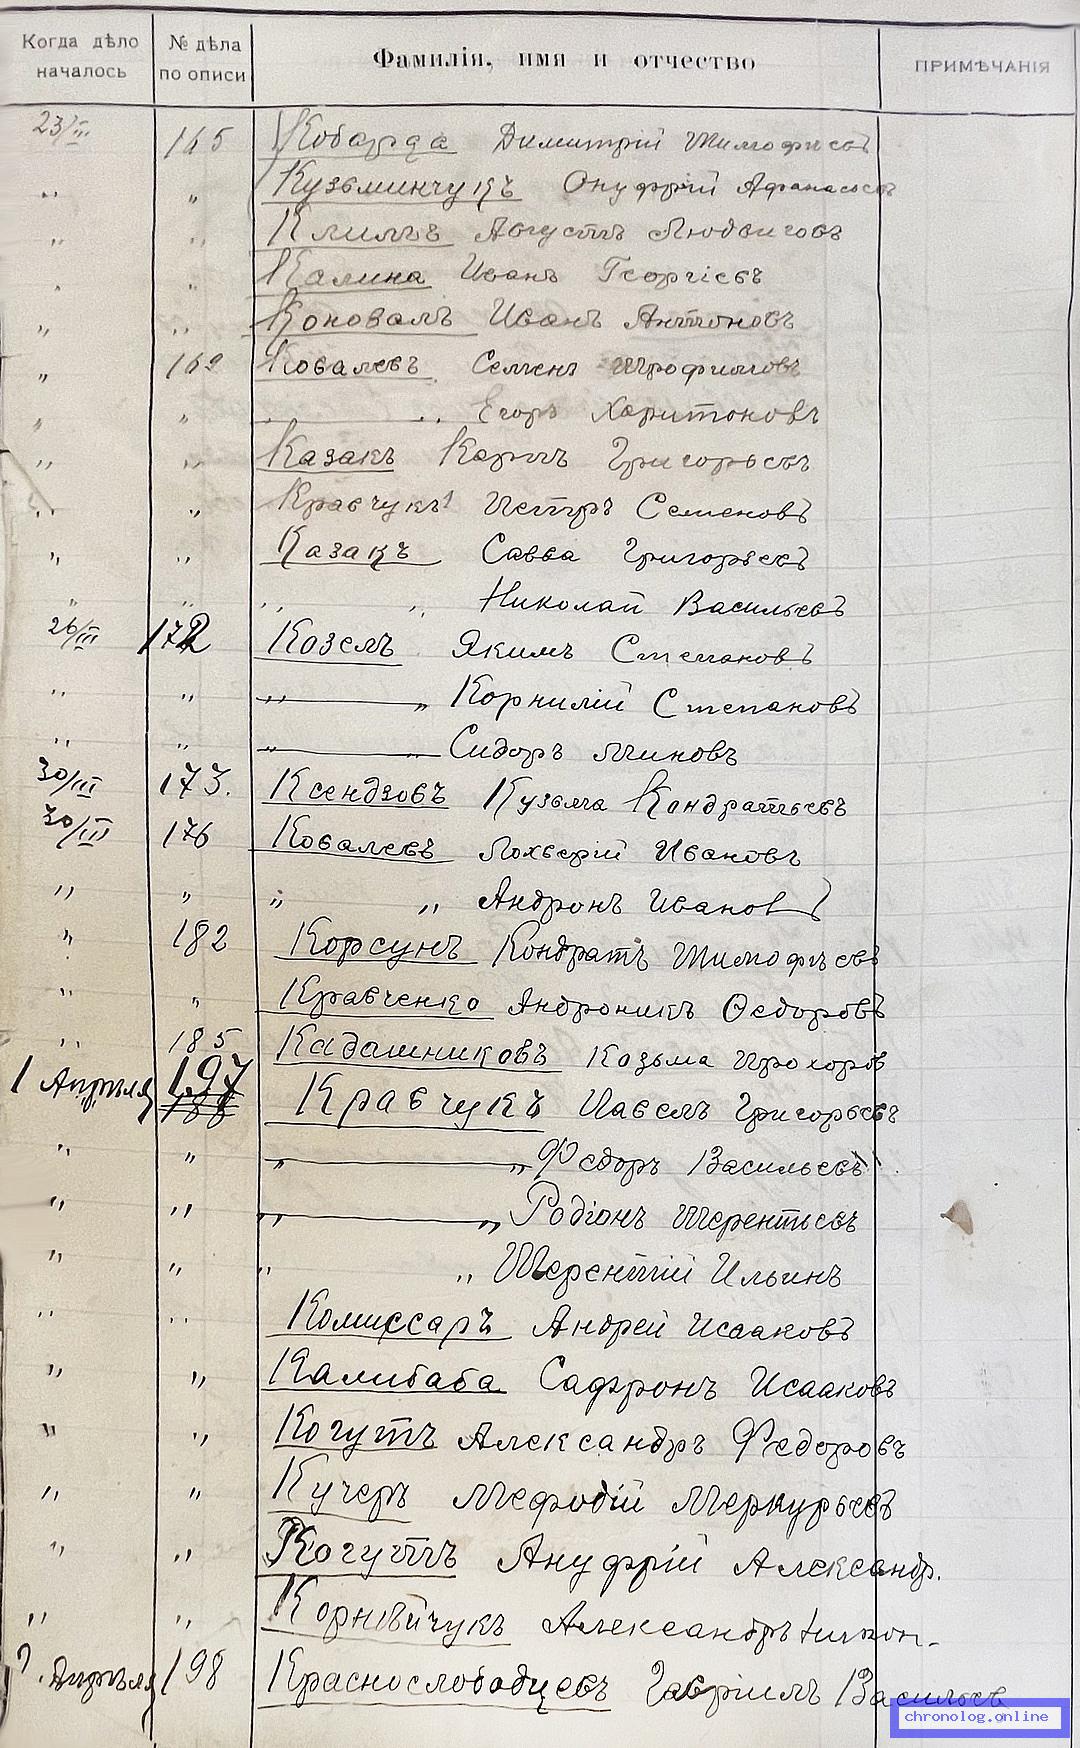 Когда дѣло началось № дѣла по описи Фамилія, имя и отчество ПРИМѢЧАНІЯ
23/III 165 Кобарда Димитрій Тимофѣевъ
" " Кузьминчукъ Онуфрій Афанасьевъ
" " Климъ Августъ Людвиговъ
" " Калина Иванъ Георгіевъ
" " Коновалъ Иванъ Антоновъ
" 169 Ковалевъ Семенъ Трофимовъ
" " " " Егоръ Харитоновъ
" " Казакъ Карпъ Григорьевъ
" " Кравчукъ Петръ Семеновъ
" " Казакъ Савва Григорьевъ
" " " " Николай Васильевъ
26/III 172 Козелъ Якимъ Степановъ
" " " " Корнилій Степановъ
" " " " Сидоръ Миновъ
30/III 173. Ксендзовъ Кузьма Кондратьевъ
30/III 176 Ковалевъ Иванъ
" " " " Андронъ Ивановъ
" 182 Корсунъ Кондратъ Тимофѣевъ
" " Кравченко Андроникъ Ѳедоровъ
" 185 Кадашниковъ Козьма Прохоров
1 Апрѣля 197 Кравчукъ Павелъ Григорьевъ
" " " " Федоръ Васильевъ
" " " " Родіонъ Терентьевъ
" " " " Терентій Ильинъ
" " Комиссаръ Андрей Исааковъ
" " Калибаба Сафронъ Исааковъ
" " Когутъ Александръ Федоровъ
" " Кучеръ Мефодій Меркурьевъ
" " Когутъ Ануфрій Александр.
" " Корнѣйчукъ Александръ
Апрѣля 198 Краснослободцевъ Гавріилъ Васильев
chronolog.online